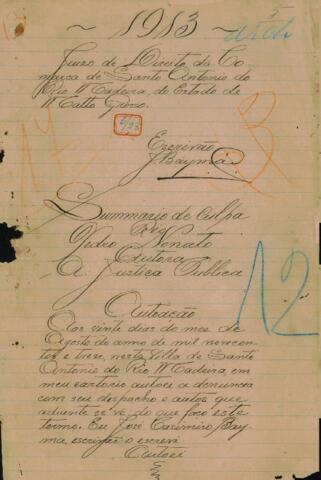 1913
Juizo de Direito da Co
marca de Santo Antonio do
Rio Madeira, do Estado de
Matto Grosso.
Escrivão
J. Bayma
Summario de Culpa
Reo
Pedro Nonato
Autora
A Justiça Publica
Autoação
Aos vinte dias do mez de
Agosto do anno de mil novecen
tos e treze, nesta Villa de Santo
Antonio do Rio Madeira, em
meu cartorio autoei a denuncia
com seu despacho e autos que
adiante se vê, do que faço este
termo. Eu José Casimiro Bay
ma escrivão o escrevi
Autoei
12